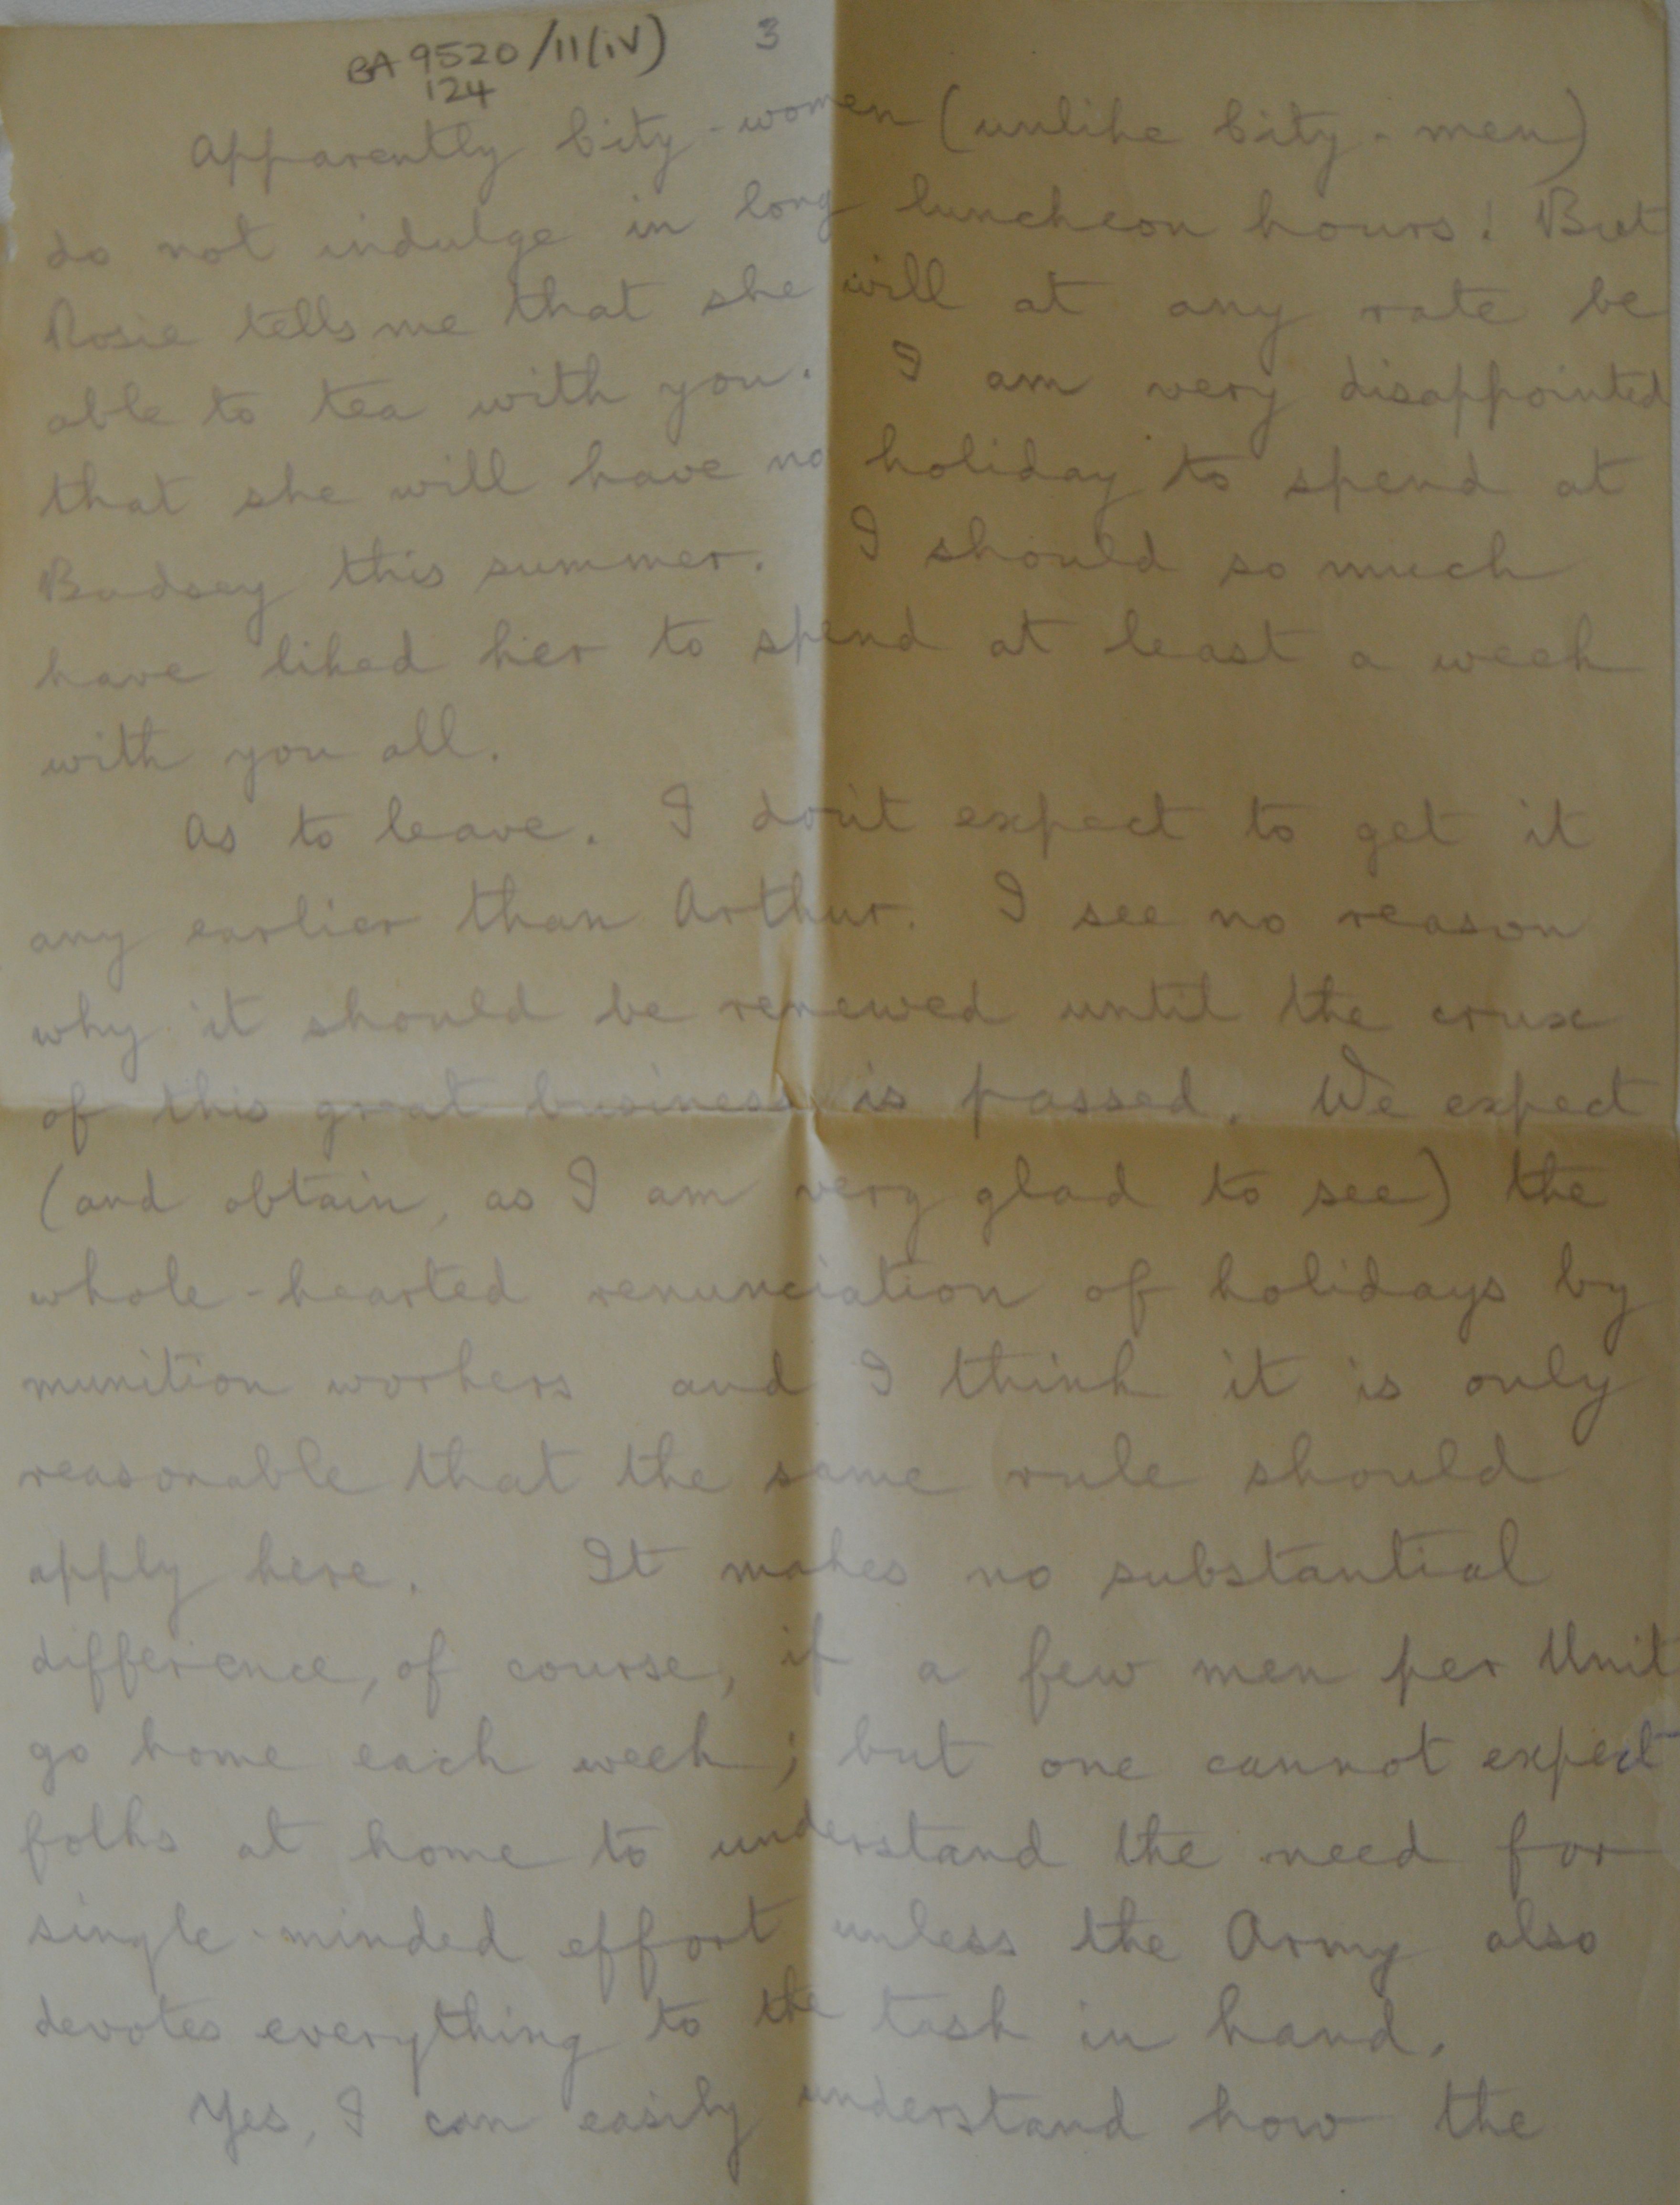 BA 9520/11(iv) 3
124
Apparently City-women (unlike City-men)
do not indulge in long luncheon hours! But
Rosie tells me that she will at any rate be
able to tea with you. I am very disappointed
that she will have no holiday to spend at
Badsey this summer. I should so much
have liked her to spend at least a week
with you all.
As to leave. I don't expect to get it
any earlier than Arthur. I see no reason
why it should be renewed until the crux
of this great business is passed. We expect
(and obtain, as I am very glad to see) the
whole-hearted renunciation of holidays by
munition workers and I think it is only
reasonable that the same rule should
apply here. It makes no substantial
difference, of course, if a few men per Unit
go home each week; but one cannot expect
folks at home to understand the need for
single-minded effort unless the Army also
devotes everything to the task in hand.
Yes, I can easily understand how the